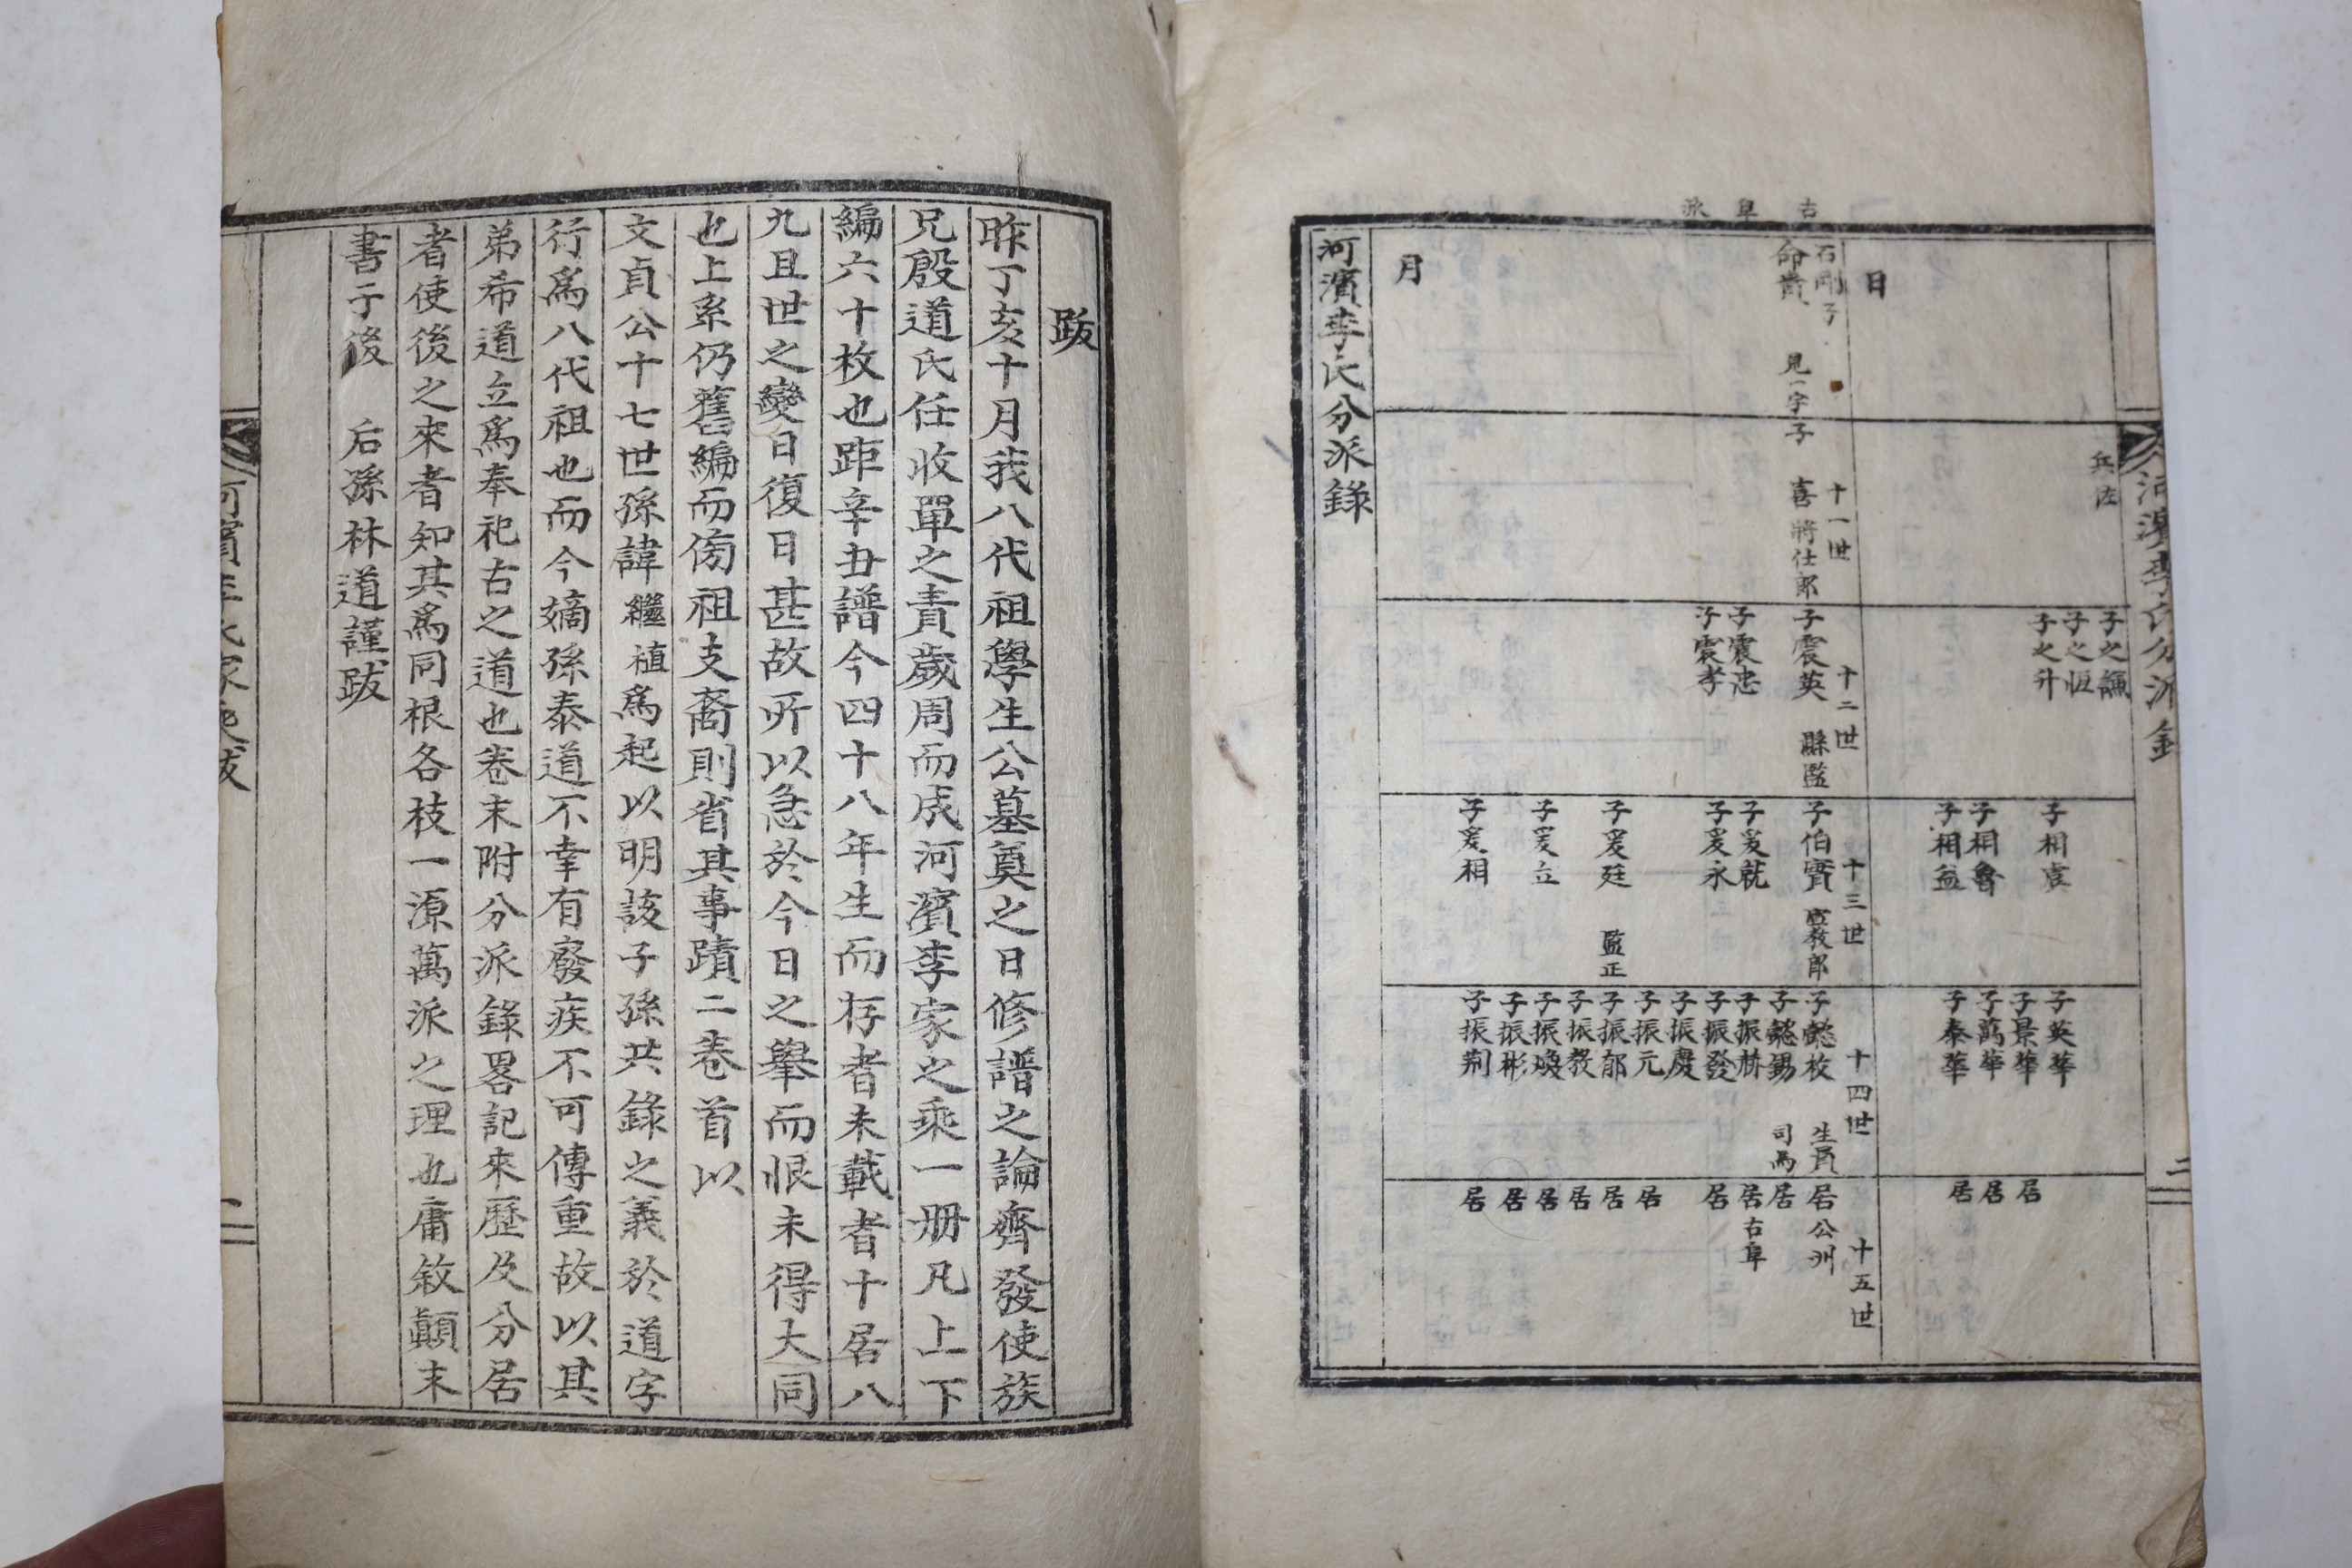 河濱李氏分派錄
二
兵佐
子之諴
子之恒
子之升
子相虛
子相魯
子相益
子英華
子景華
子萬華
子泰華
居
居
居
日
古阜派
石剛子
命貴
見一字
子喜 將仕郞
十一世
子震英 縣監
子震忠
子震孝
十二世
子伯實 宣敎郞
子爰就
子爰永
子爰廷 監正
子爰立
子爰相
十三世
子懿枚 生員
子懿男 司馬
子振赫
子振發
子振慶
子振元
子振郁
子振敎
子振煥
子振彬
子振荊
十四世
居公州
居
居古阜
居
居
居
居
居
居
居
十五世
月
河濱李氏分派錄
跋
昨丁亥十月我八代祖學生公墓奠之日修譜之論齊發使族
兄殷道氏任收單之責歲周而成河濱李家之乘一册凡上下
編六十枚也距辛丑譜今四十八年生而存者未載者十居八
九且世之變日復日甚故所以急於今日之擧而恨未得大同
也上系仍舊編而傍祖支裔則省其事蹟二卷首以
文貞公十七世孫諱繼植爲起以明該子孫共錄之義於道字
行爲八代祖也而今嫡孫泰道不幸有廢疾不可傳重故以其
弟希道立爲奉祀古之道也卷末附分派錄畧記來歷及分居
者使後之來者知其爲同根各枝一源萬派之理也庸敘顚末
書于後 后孫林道謹跋
河濱李氏家乘跋
一